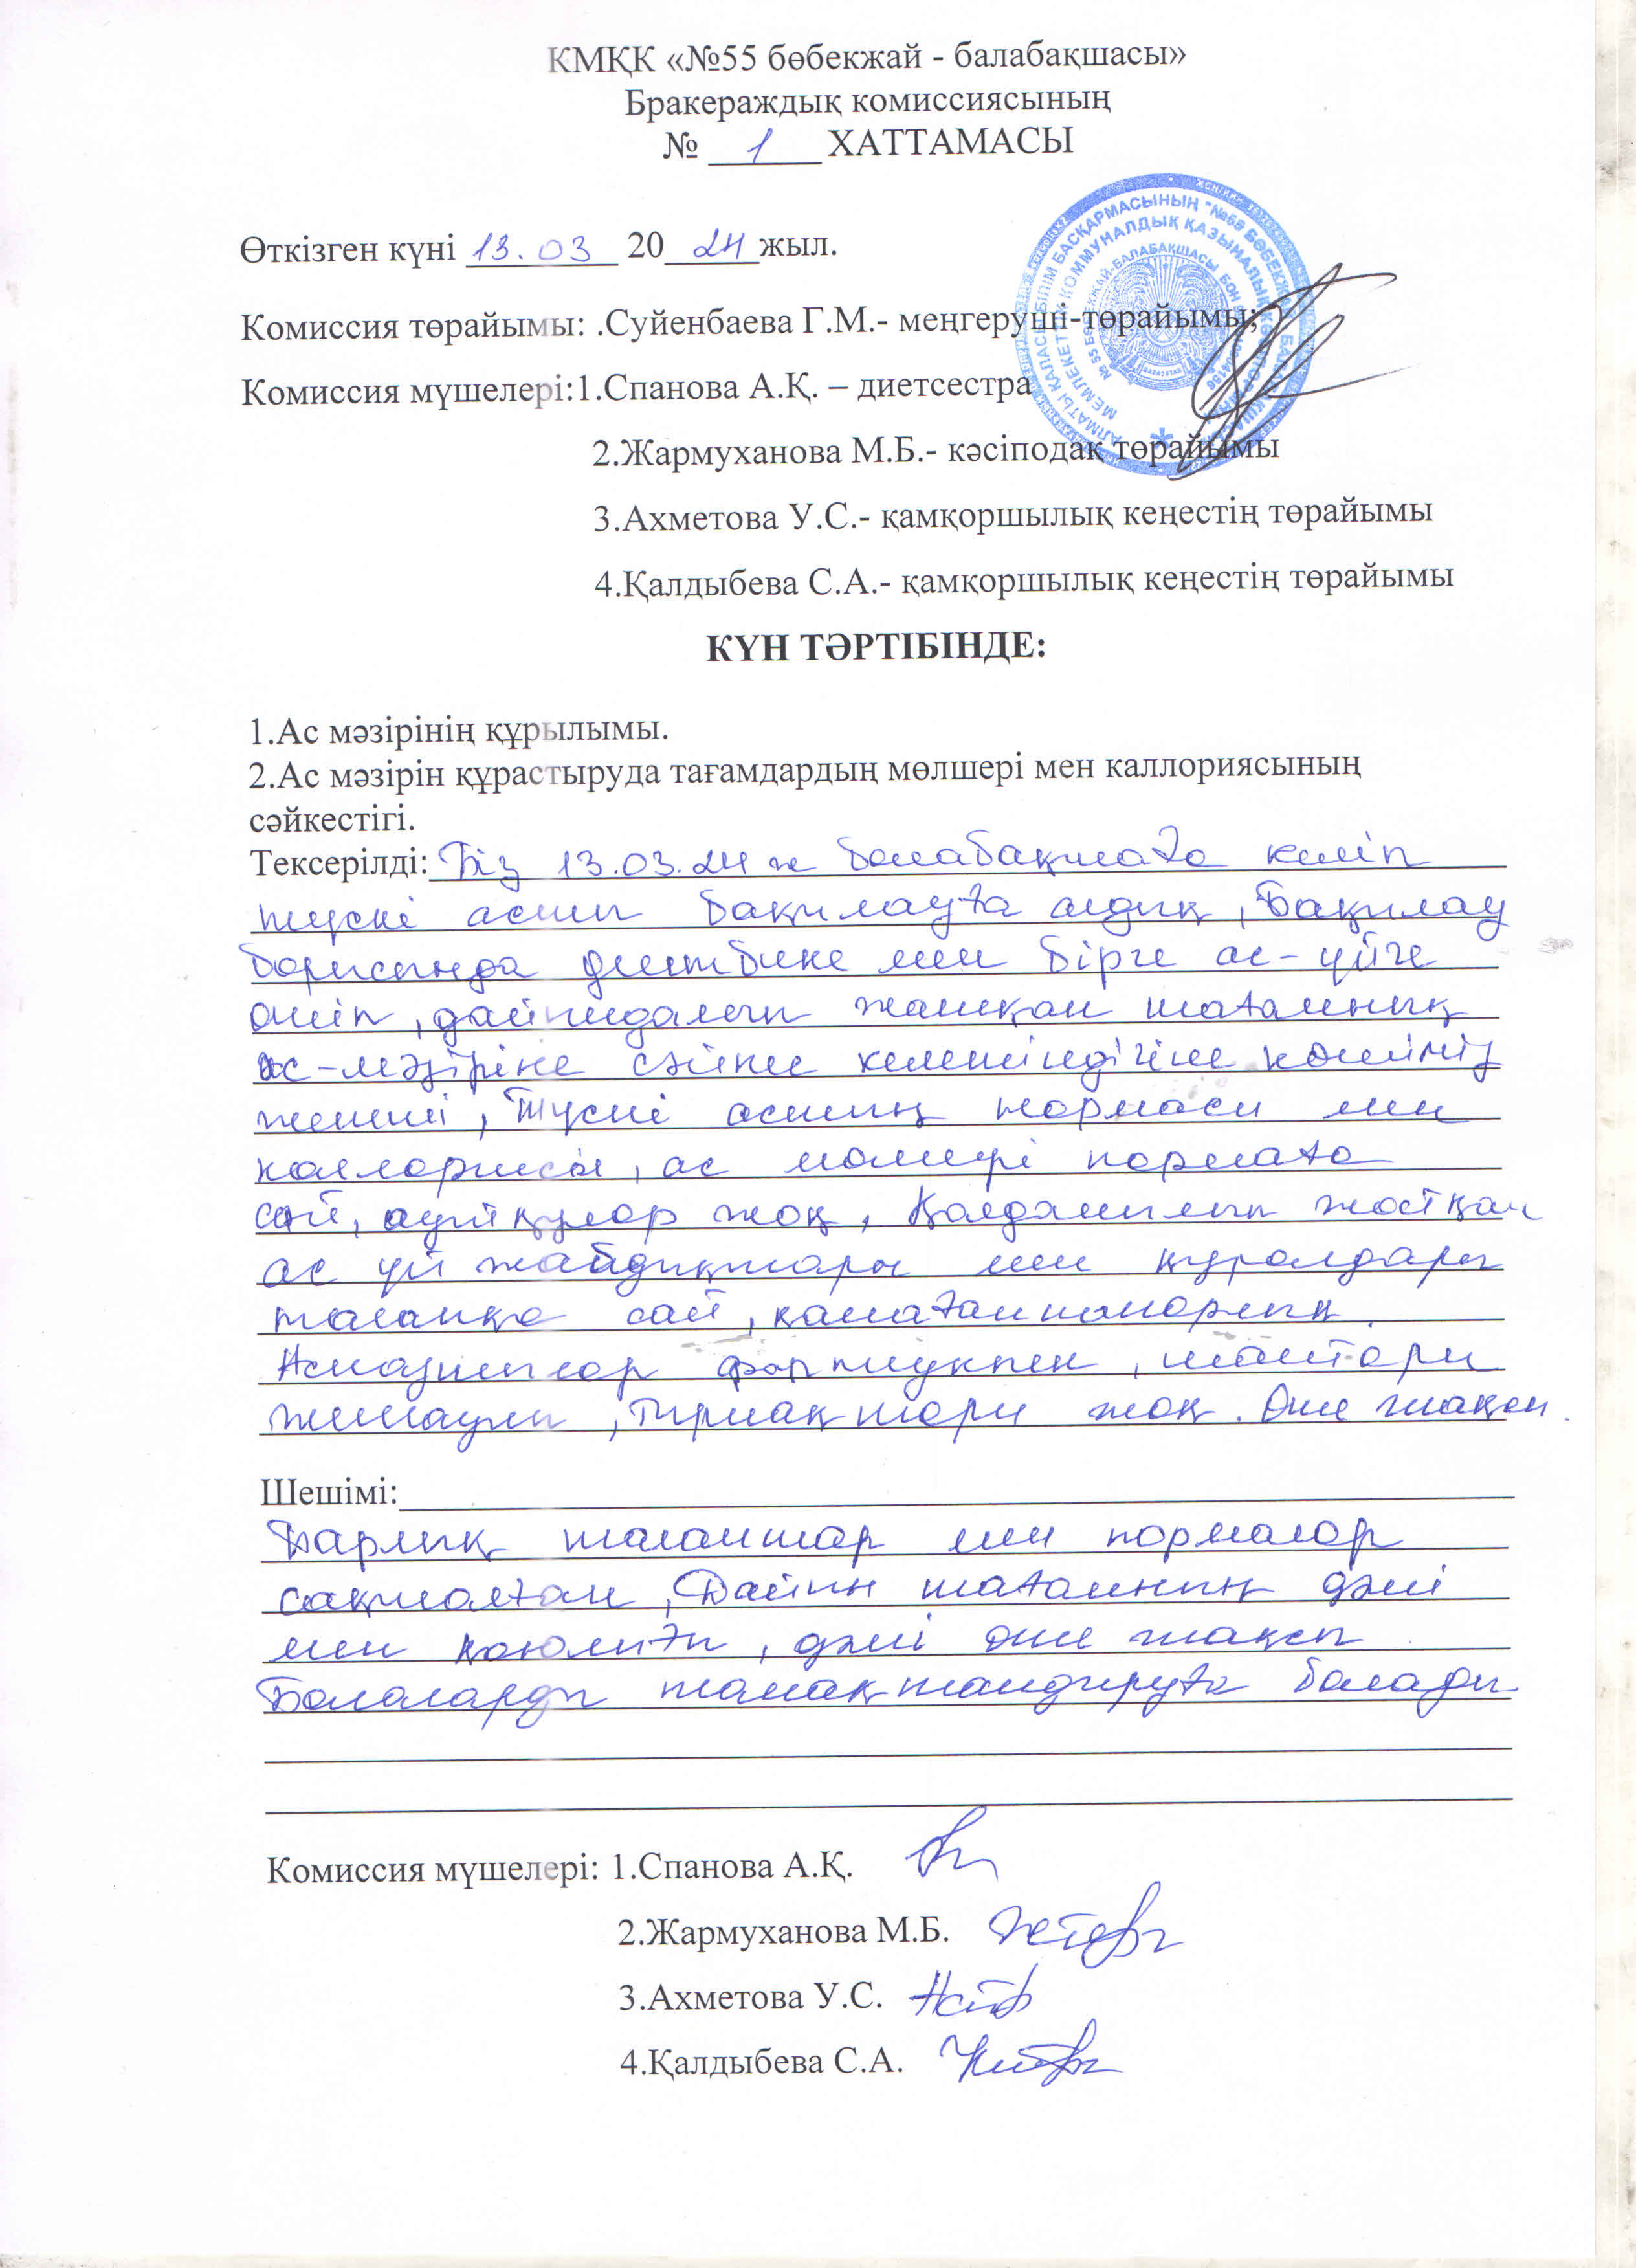 КМҚК «№55 бөбекжай - балабақшасы»
Бракераждық комиссиясының
№ 1 ХАТТАМАСЫ
Өткізген күні 13.03 2024 жыл.
Комиссия төрайымы: .Суйенбаева Г.М.- меңгеруші-төрайымы;
Комиссия мүшелері:1.Спанова А.Қ. – диетсестра
2.Жармуханова М.Б.- кәсіподақ төрайымы
3.Ахметова У.С.- қамқоршылық кеңестің төрайымы
4.Қалдыбева С.А.- қамқоршылық кеңестің төрайымы
КҮН ТӘРТІБІНДЕ:
1.Ас мәзірінің құрылымы.
2.Ас мәзірін құрастыруда тағамдардың мөлшері мен каллориясының
сәйкестігі.
Тексерілді: Біз 13.03.24 ж балабақшаға келіп
түскі асты бақылауға алдық, Бақылау
барысында диетбике мен бірге ас-үйге
еніп, дайындалып жатқан тағамның
ас-мәзіріне сәйкес келетіндігіне көзіміз
жетті, Түскі астың нормасы мен
каллориясы, ас мөлшері нормаға
сай, ауытқулар жоқ, Қолданылып жатқан
ас үй жабдықтары мен құралдары
талапқа сай, қанағаттанарлық.
Аспазшылар фартукпен, шаштары
жинаулы, тырнақтары жоқ. Өте жақсы.
Шешімі:
Барлық талаптар мен нормалар
сақталған, Дайын тағамның дәмі
мен қоюлығы, дәмі өте жақсы
Балаларды тамақтандыруға болады
Комиссия мүшелері: 1.Спанова А.Қ.
2.Жармуханова М.Б.
3.Ахметова У.С.
4.Қалдыбева С.А.